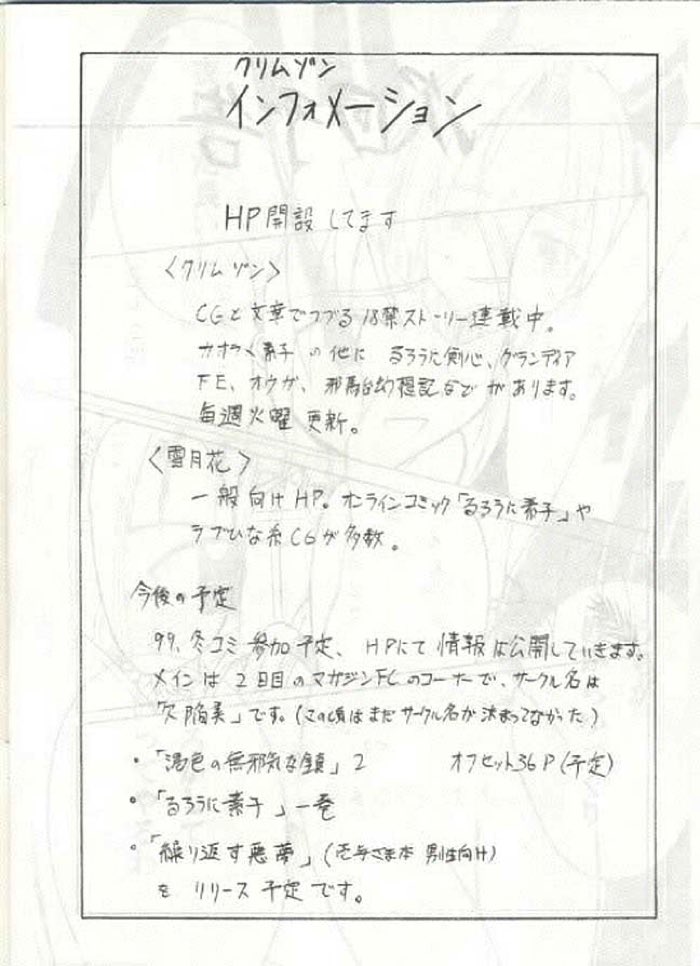 クリムゾン
インフォメーション
HP開設してます
〈クリムゾン〉
CGと文章でつづる18禁ストーリー連載中。
カオラと素子の他に るろうに剣心、グランディア
FE、オウガ、邪馬台幻想記などがあります。
毎週火曜更新。
〈雪月花〉
一般向けHP。オンラインコミック「るろうに素子」や
ラブひな系CGが多数。
今後の予定
99、冬コミ参加予定、HPにて情報は公開していきます。
メインは2日目のマガジンFCのコーナーで、サークル名は
欠陥美」です。(この頃はまだサークル名が決まってなかった)
・「褐色の無邪気な鎖」2 オフセット36P(予定)
・「るろうに素子」一巻
・「繰り返す悪夢」(壱与さま本 男性向け)
を リリース予定です。